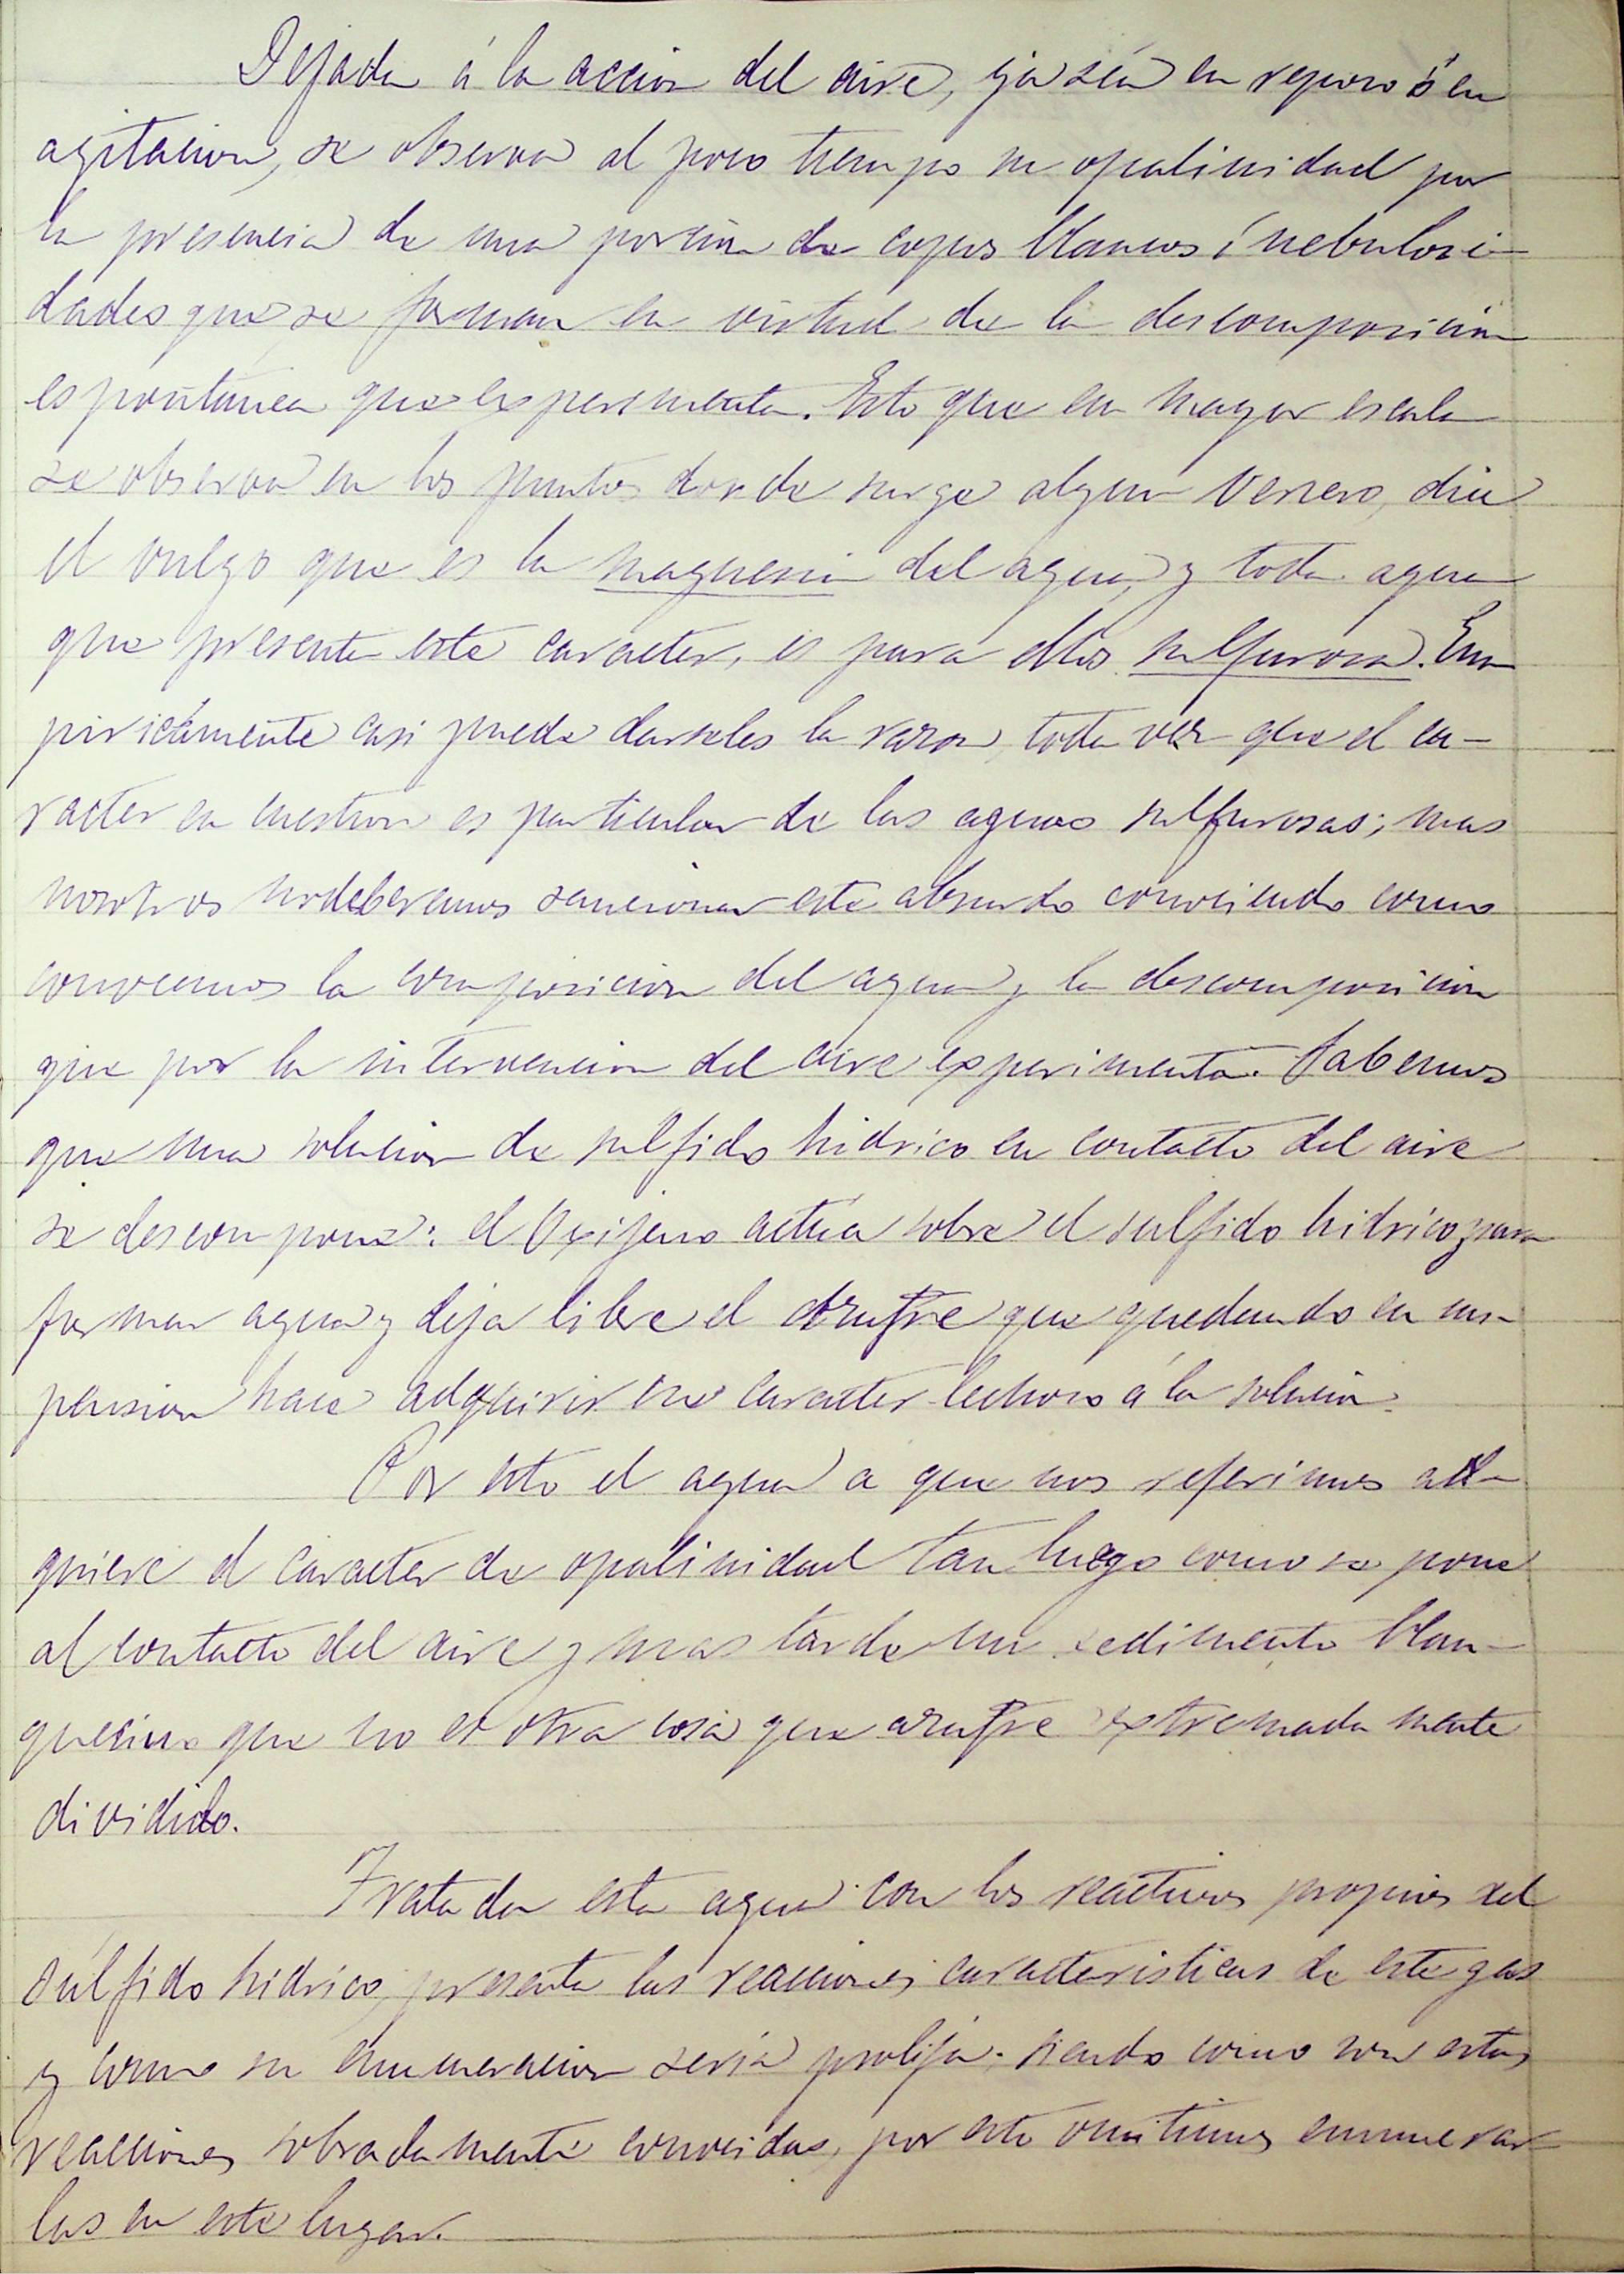 Dejada á la accion del aire, ya sea en reposo ó en
agitacion, se observa al poco tiempo su opalinidad por
la presencia de una porcion de copos blancos ó nebulosi-
dades que se forman en virtud de la descomposicion
espontánea que experimenta. Esto que en mayor escala
se observa en los puntos donde surge algun venero, dice
el vulgo que es la magnesia del agua, y toda agua
que presente este caracter, es para ellos sulfurosa. Em-
piricamente casi puede darseles la razon, toda vez que el ca-
racter en cuestion es particular de las aguas sulfurosas; mas
nosotros no deberemos sancionar este absurdo conociendo como
conocemos la composicion del agua y la descomposicion
que por la intervencion del aire experimenta. Sabemos
que una solucion de sulfido hidrico en contacto del aire
se descompone: el Oxijeno actúa sobre el sulfido hidrico para
formar agua y deja libre el azufre que quedando en sus-
pension hace adquirir ese caracter lechoso á la solucion.
Por esto el agua a que nos referimos ad-
quiere el caracter de opalinidad tan luego como se pone
al contacto del aire y mas tarde un sedimento blan-
quecino que no es otra cosa que azufre extremadamente
dividido.
Tratada esta agua con los reactivos propios del
Sulfido hidrico, presenta las reacciones caracteristicas de este gas
y como su enumeracion seria prolija, siendo como son estas
reacciones sobradamente conocidas, por esto omitimos enumerar-
las en este lugar.